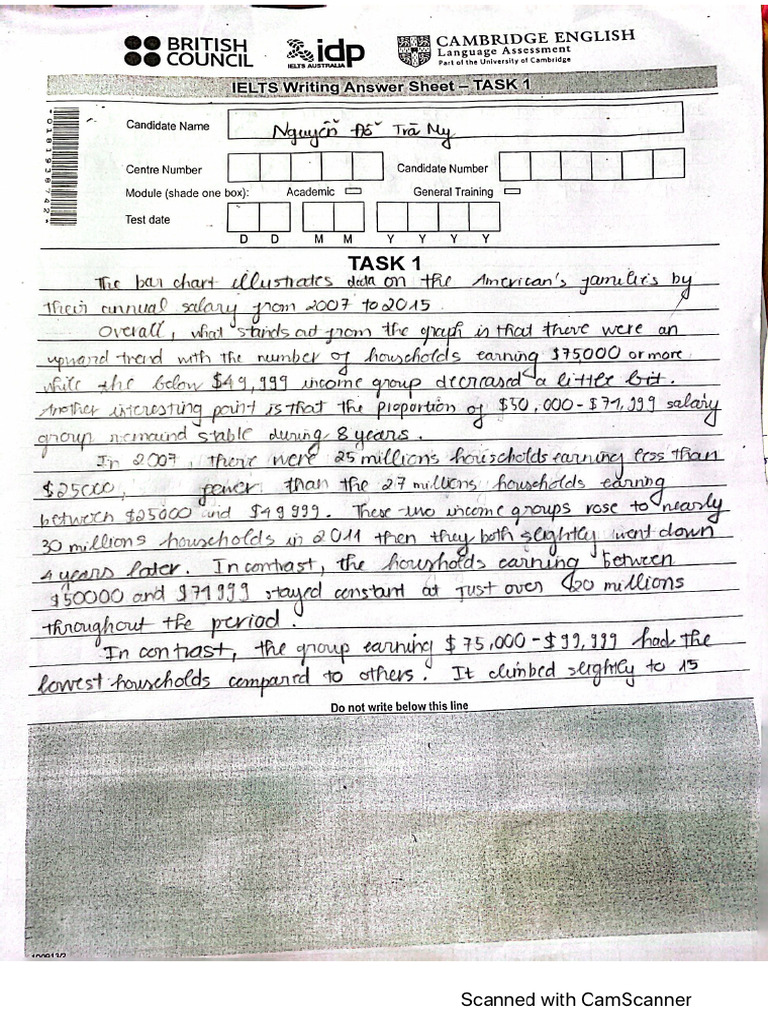 BRITISH COUNCIL
idp
IELTS AUSTRALIA
CAMBRIDGE ENGLISH
Language Assessment
Part of the University of Cambridge
IELTS Writing Answer Sheet – TASK 1
Candidate Name
Nguyễn Đỗ Trà My
Centre Number
Candidate Number
Module (shade one box):
Academic
General Training
Test date
D D M M Y Y Y Y
TASK 1
The bar chart illustrates data on the American's families by
their annual salary from 2007 to 2015.
Overall, what stands out from the graph is that there were an
upward trend with the number of households earning $75000 or more
while the below $49,999 income group decreased a little bit.
Another interesting point is that the proportion of $50,000-$74,999 salary
group remaind stable during 8 years.
In 2007, there were 25 millions households earning less than
$25000, fewer than the 27 millions households earning
between $25000 and $49999. These two income groups rose to nearly
30 millions households in 2011 then they both slightly went down
4 years later. In contrast, the housholds earning between
$50000 and $74999 stayed constant at just over 20 millions
throughout the period.
In contrast, the group earning $75,000-$99,999 had the
lowest households compared to others. It climbed slightly to 15
Do not write below this line
Scanned with CamScanner